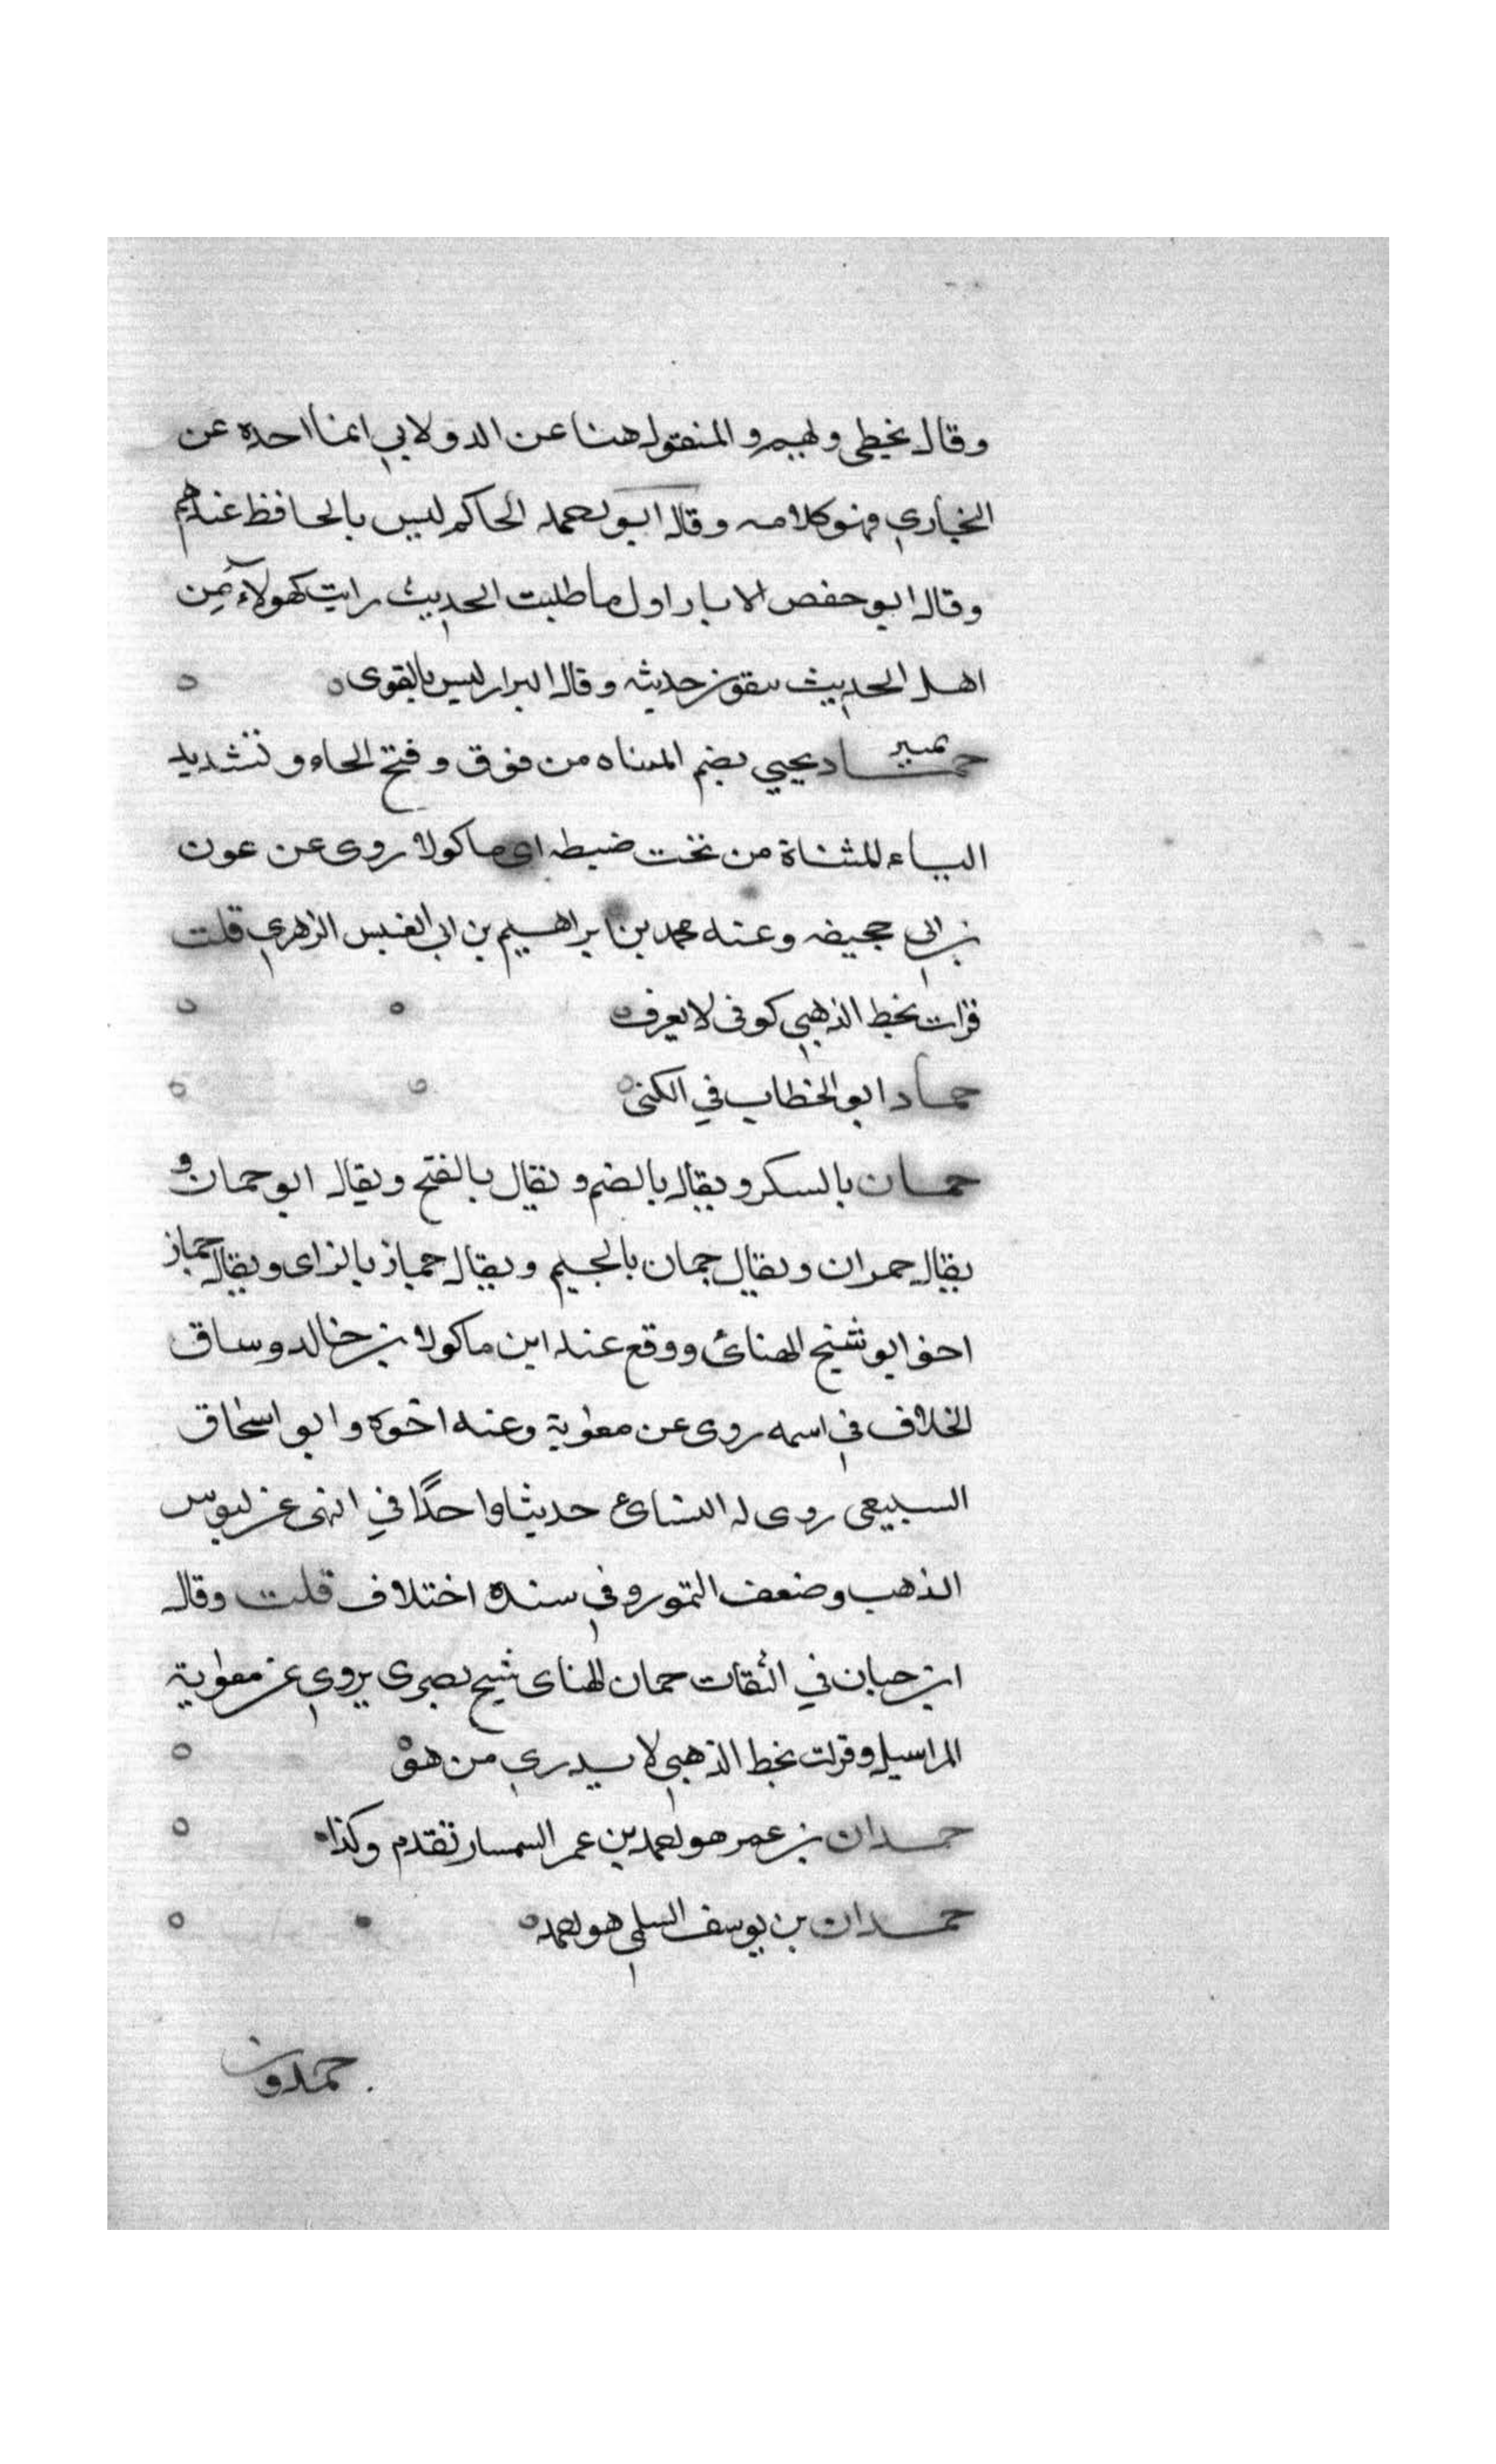 وقال يخطى ولهيم و المنقول هنا عن الدولابي انما احده عن
البخاري فهو كلامه وقال ابو احمد الحاكم ليس بالحافظ عندهم
وقال ابو حفص الابار اول ما طلبت الحديث رايت كهولاء من
اهل الحديث يتقون حديثه وقال البزار ليس بالقوى
حماد يحيي بضم المثناه من فوق وفتح الحاء وتشديد
الياء المثناة من تحت ضبطه ابن ماكولا روى عن عون
بن ابي جحيفه وعنه محمد بن ابراهيم بن ابي العنبس الزهري قلت
قرات بخط الذهبي كوفى لا يعرف
حماد ابو الخطاب في الكنى
حمان بالسكر ويقال بالضم ويقال بالفتح ويقال ابو حمان و
يقال حمران ويقال جمان بالجيم ويقال حماز بالزاى ويقال حماز
اخو ابو شيخ الهنائ ووقع عند ابن ماكولا بن خالد وساق
الخلاف في اسمه روى عن معوية وعنه اخوه وابو اسحاق
السبيعى روى له النسائ حديثا واحدًا في النهى عن لبوس
الذهب وضعف التمور وفي سنده اختلاف قلت وقال
ابن حبان في الثقات حمان الهناى شيخ بصرى يروي عن معوية
المراسيل وقرات بخط الذهبي لا يدري من هو
حمدان بن عمر هو احمد بن عمر السمسار تقدم وكذا
حمدان بن يوسف السلمي هو احمد
حمدون